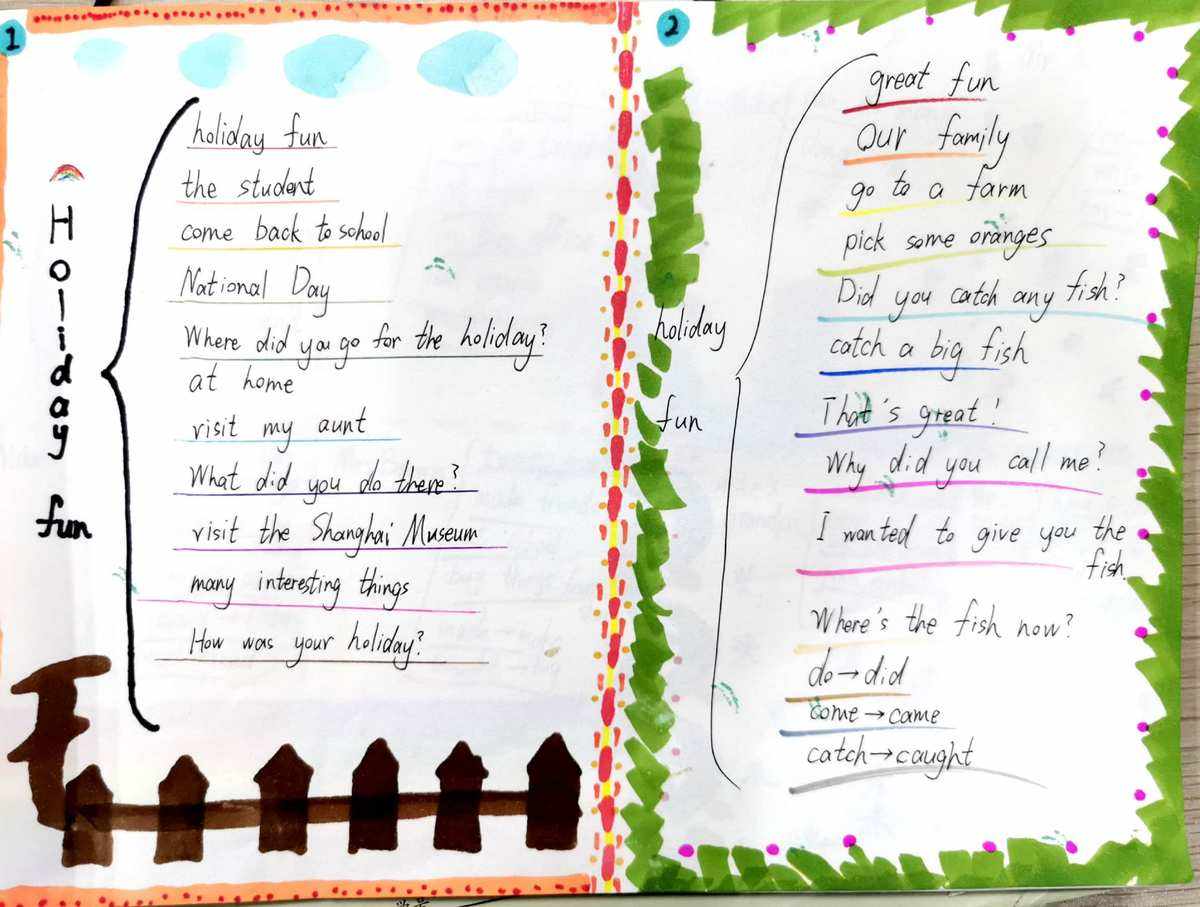 1
Holiday
fun
holiday fun
the student
come back to school
National Day
Where did you go for the holiday?
at home
visit my aunt
What did you do there?
visit the Shanghai Museum
many interesting things
How was your holiday?
2
holiday
fun
great fun
Our family
go to a farm
pick some oranges
Did you catch any fish?
catch a big fish
That's great!
Why did you call me?
I wanted to give you the
fish.
Where's the fish now?
do→did
come→came
catch→caught